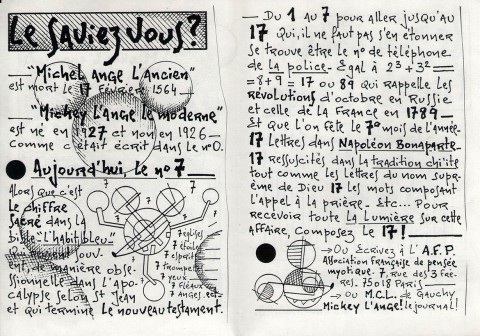 Le Saviez Vous?
— "Michel Ange L'Ancien"
est mort le 17 Février 1564 —
— "Mickey L'Ange le moderne"
est né en 1927 et non en 1926 —
comme c'était écrit dans le n°0.
Aujourd'hui, le n° 7 —
Alors que c'est
le chiffre
Sacré dans la
Bible: "l'habit bleu"
revient souv-
ent, de manière obsé-
ssionnelle dans l'Apo-
calypse selon St Jean
et qui termine le nouveau testament.
7
7
7
7
7
7
7 églises
7 étoiles
7 esprits
7 trompettes
7 yeux
7 fléaux
7 anges..etc
— Du 1 au 7 pour aller jusqu'au
17 Qui, il ne faut pas s'en étonner
se trouve être le n° de téléphone
de la police. Egal à 2³ + 3² =
= 8 + 9 = 17 ou 89 qui rappelle les
révolutions d'octobre en Russie
et celle de la France en 1789 —
Et que l'on fête le 7° mois de l'année.
17 lettres dans Napoléon Bonaparte
17 ressuscités dans la tradition chi'ite
tout comme les lettres du nom supr-
ème de Dieu 17 les mots composant
l'appel à la prière. Etc... Pour
recevoir toute la Lumière sur cette
affaire, composez le 17!
→ Ou Ecrivez à l'A.F.P.
Association Française de pensée
mystique. 7, rue des 3 Frè-
res. 75018 Paris —
→ ou M.C.L. de Gauchy
Mickey l'Ange! le journal!